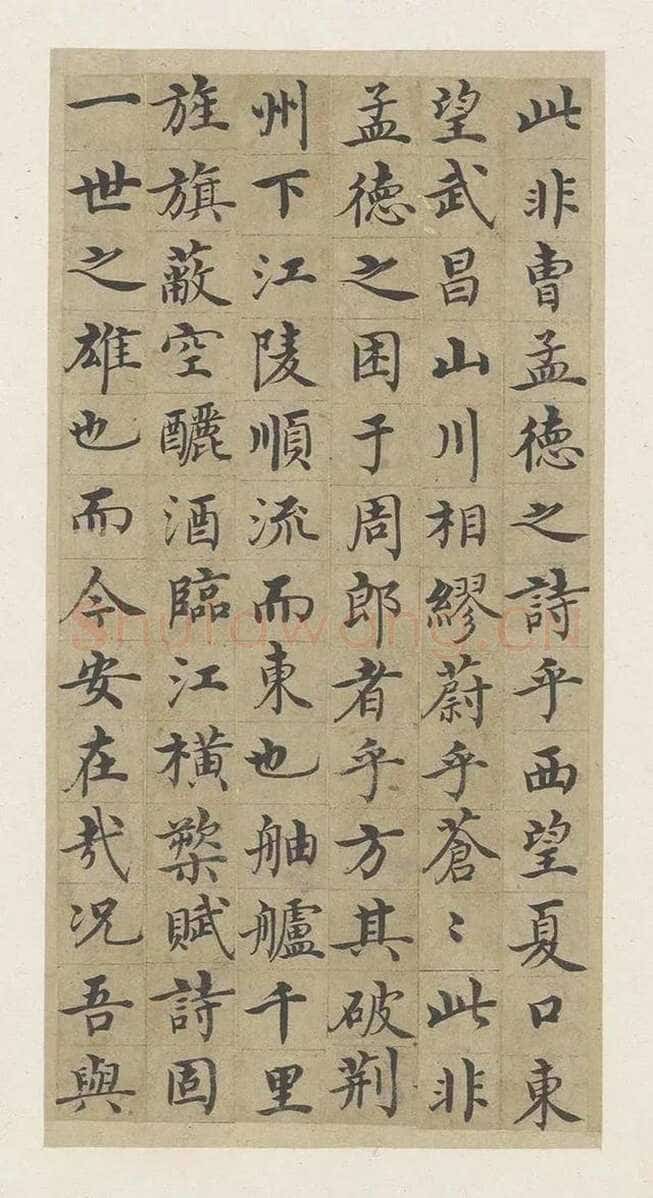 此非曹孟德之詩乎西望夏口東
望武昌山川相繆蔚乎蒼〻此非
孟德之困于周郎者乎方其破荆
州下江陵順流而東也舳艫千里
旌旗蔽空釃酒臨江橫槊賦詩固
一世之雄也而今安在哉况吾與
shufawang.cn